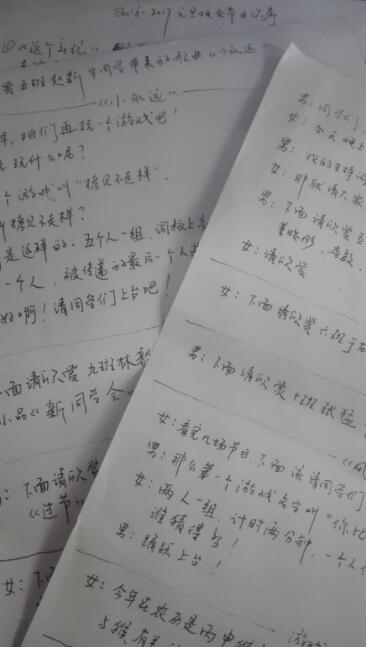 2016-2017 元旦晚会节目程序
①《这个年纪》
赏五班赵新
同学带来的歌曲《小永远》
《小永远》
咱们再玩一个游戏吧！
玩什么呢？
个游戏叫"拷贝不走样".
叫拷贝不走样？
是这样的，五个人一组，词板上
一个人，被传递的最后一个人
好啊！请同学们上台吧！
面请欣赏 九班林
小品《新同学会》
：下面请欣赏
《过节》
女：下
男：同学们，
女：今天晚上
男：我的主持
女：那就请大家
男：下面请欣赏五
女：请欣赏
女：下面请欣赏六班于
男：下面请欣赏十班张猛
女：看完几场节目下面该请同学们
男：那么第一个游戏名字叫"你比
女：两人一组，计时两分钟，一个人
谁猜得多！
男：踊跃上台！
女：今年在农历是丙申
与猴有关